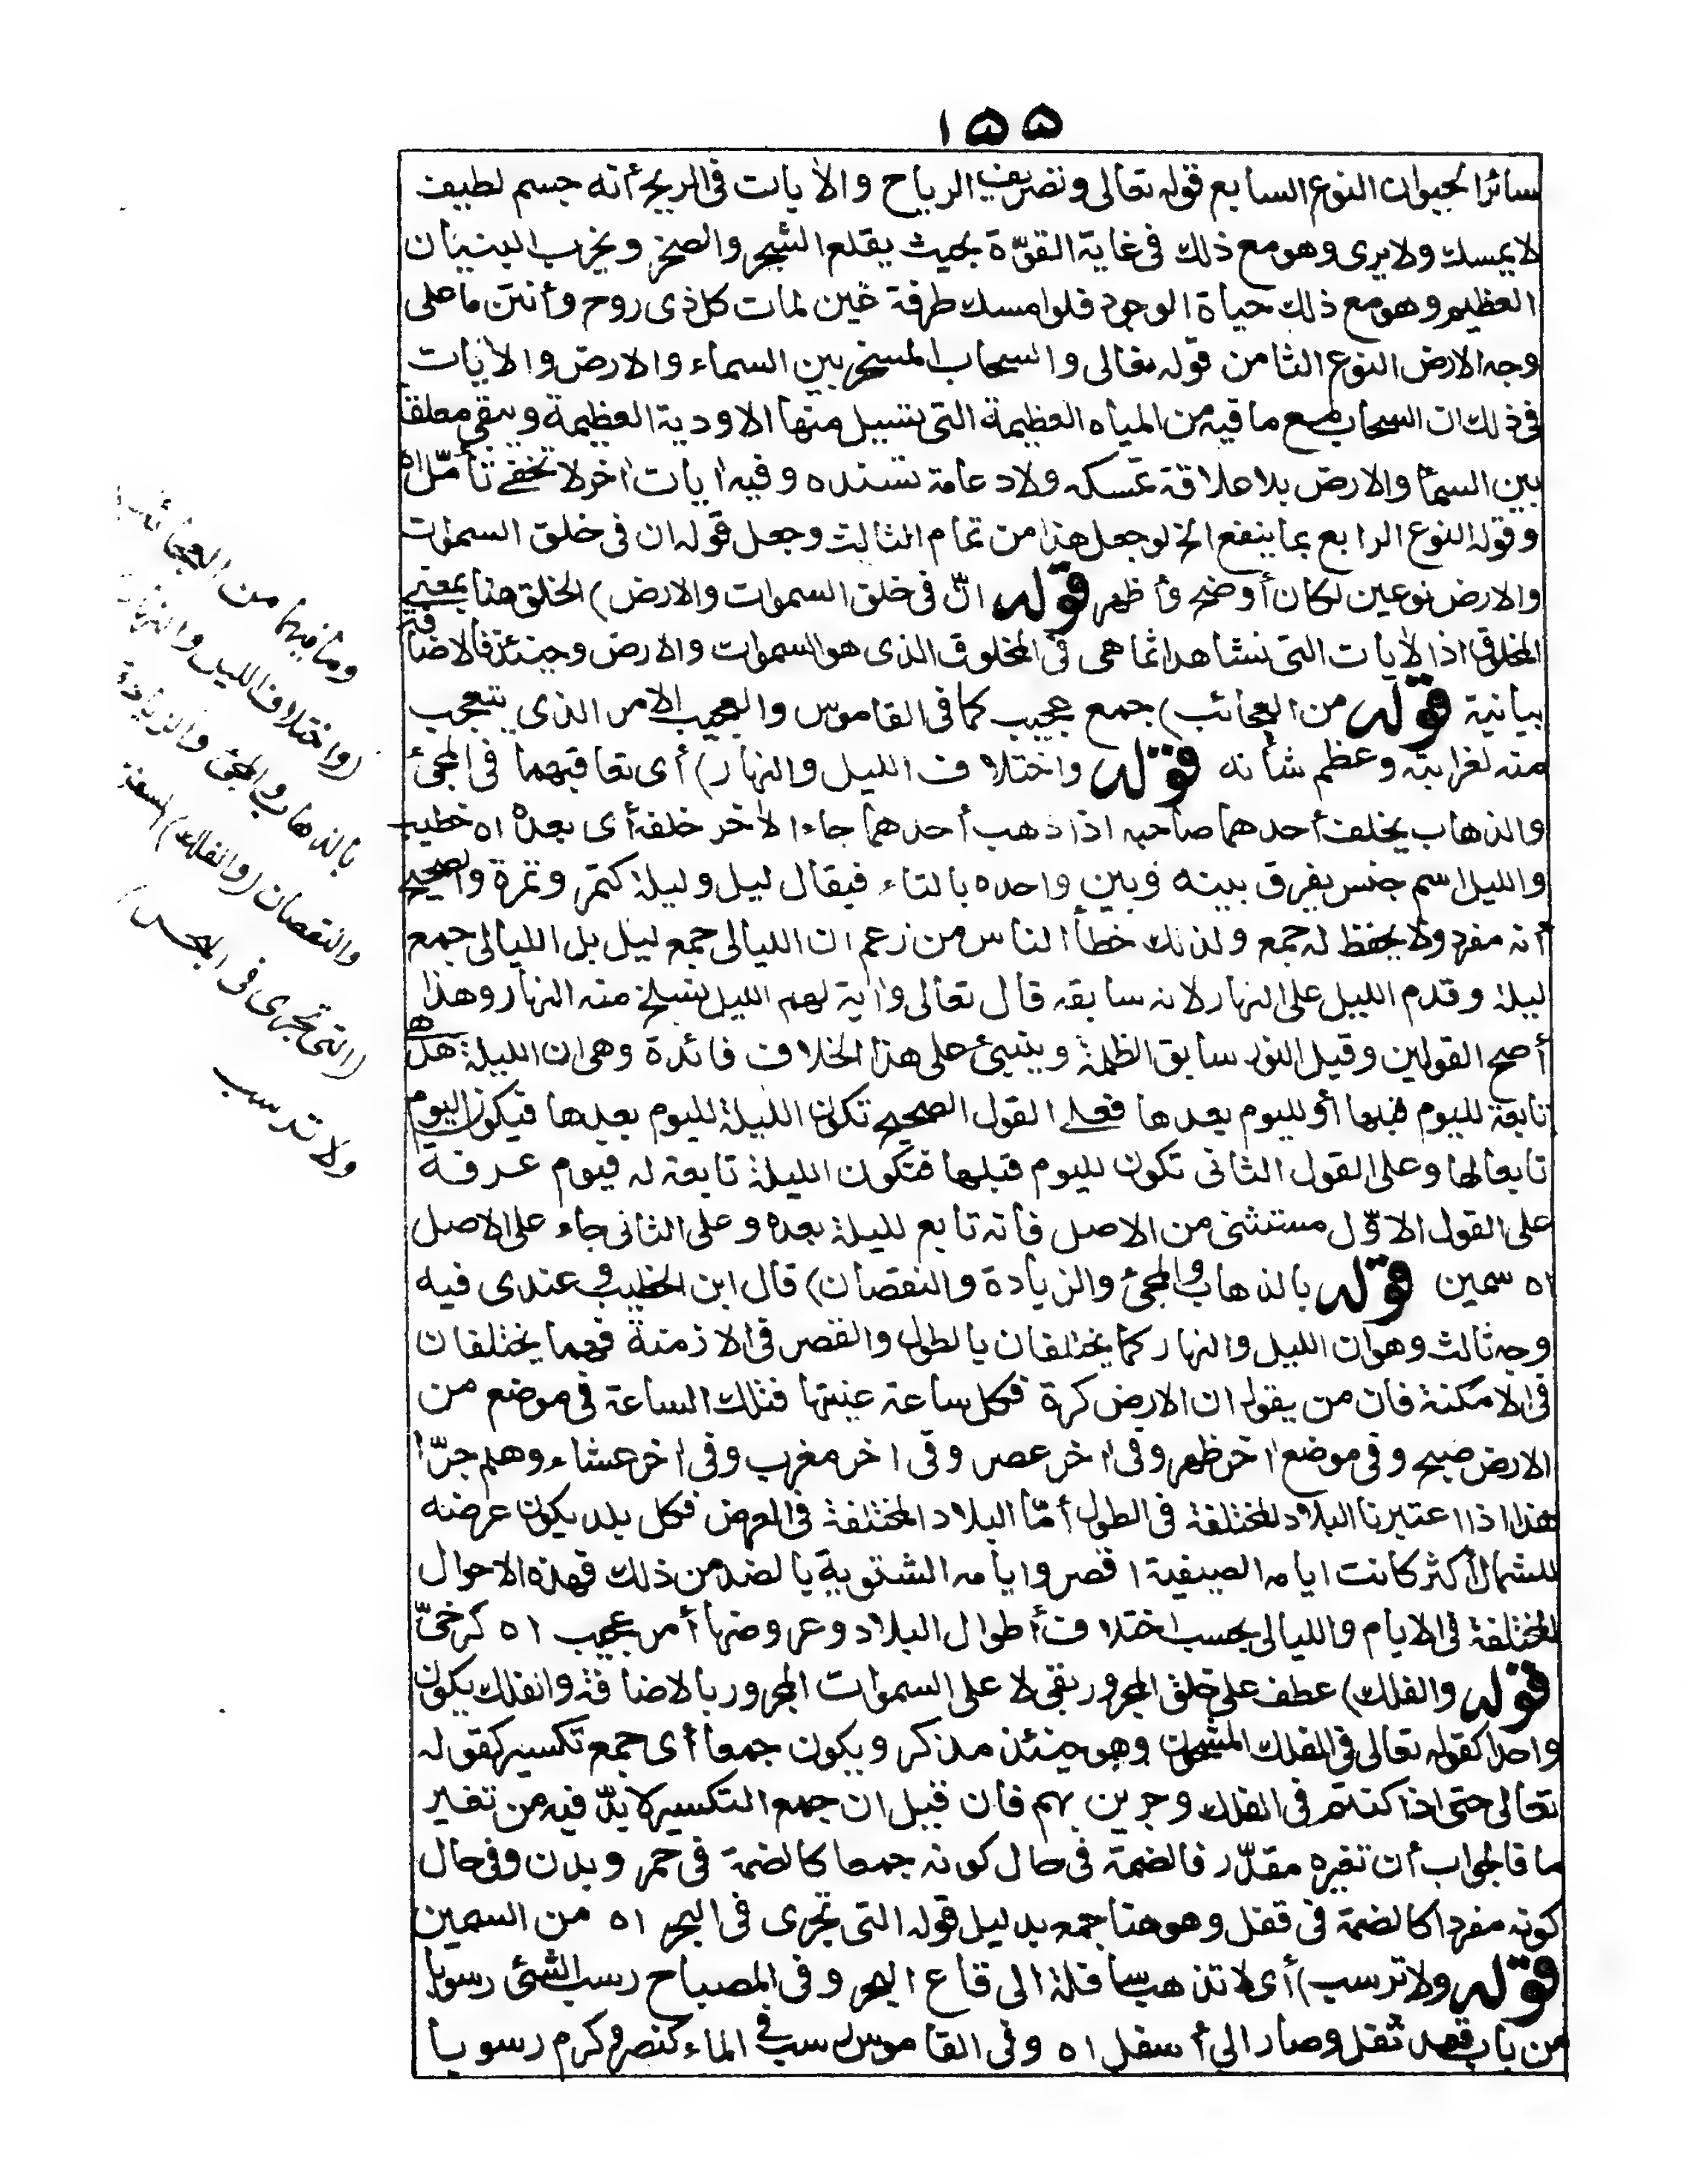 ١٥٥
سائر الحيوان النوع السابع قوله تعالى وتصريف الرياح والآيات فى الريح أنه جسم لطيف
لا يمسك ولا يرى وهو مع ذلك فى غاية القوّة بحيث يقلع الشجر والصخر ويخرب البنيان
العظيم وهو مع ذلك حياة الوجود فلو امسك طرفة عين لمات كل ذى روح وأنتن ما على
وجه الارض النوع الثامن قوله تعالى والسحاب المسخر بين السماء والارض والآيات
فى ذلك ان السحاب مع ما فيه من المياه العظيمة التى تسيل منها الاودية العظيمة ويبقى معلقا
بين السماء والارض بلا علاقة تمسكه ولا دعامة تسنده وفيه آيات اخر لا تخفى تأمّل اه
وقوله النوع الرابع بما ينفع الخ لو جعل هذا من تمام الثالث وجعل قوله ان فى خلق السموات
والارض نوعين لكان أوضح وأظهر قوله انّ فى خلق السموات والارض) الخلق هنا بمعنى
المخلوق اذ الآيات التى نشاهد انما هى فى المخلوق الذى هو السموات والارض وحينئذ فالاضافة
بيانية قوله من العجائب) جمع عجيب كما فى القاموس والعجيب الامر الذى يتعجب
منه لغرابته وعظم شأنه قوله واختلاف الليل والنهار) أى تعاقبهما فى المجئ
والذهاب يخلف أحدهما صاحبه اذا ذهب أحدهما جاء الآخر خلفه أى بعده اه خطيب
والليل اسم جنس يفرق بينه وبين واحده بالتاء فيقال ليل وليلة كتمر وتمرة والصحيح
أنه مفرد ولا يحفظ له جمع ولذلك خطأ الناس من زعم ان الليالى جمع ليل بل الليالى جمع
ليلة وقدم الليل على النهار لانه سابقه قال تعالى وآية لهم الليل نسلخ منه النهار وهذا
أصح القولين وقيل النور سابق الظلمة وينبنى على هذا الخلاف فائدة وهى ان الليلة هل هى
تابعة لليوم قبلها أو لليوم بعدها فعلى القول الصحيح تكون الليلة لليوم بعدها فيكون اليوم
تابعا لها وعلى القول الثانى تكون لليوم قبلها فتكون الليلة تابعة له فيوم عرفة
على القول الاوّل مستثنى من الاصل فانه تابع لليلة بعده وعلى الثانى جاء على الاصل
اه سمين قوله بالذهاب والمجئ والزيادة والنقصان) قال ابن الخطيب وعندى فيه
وجه ثالث وهو ان الليل والنهار كما يختلفان بالطول والقصر فى الازمنة فهما يختلفان
فى الامكنة فان من يقول ان الارض كرة فكل ساعة عينتها فتلك الساعة فى موضع من
الارض صبح وفى موضع آخر ظهر وفى آخر عصر وفى آخر مغرب وفى آخر عشاء وهلم جرّا
هذا اذا اعتبرنا البلاد المختلفة فى الطول أمّا البلاد المختلفة فى العرض فكل بلد يكون عرضه
للشمال أكثر كانت ايامه الصيفية اقصر وايامه الشتوية بالضد من ذلك فهذه الاحوال
المختلفة فى الايام والليالى بحسب اختلاف أطوال البلاد وعروضها أمر عجيب اه كرخىّ
قوله والفلك) عطف على خلق المجرور بفى لا على السموات المجرور بالاضافة والفلك يكون
واحدا كقوله تعالى فى الفلك المشحون وهو حينئذ مذكر ويكون جمعا أى جمع تكسير كقوله
تعالى حتى اذا كنتم فى الفلك وجرين بهم فان قيل ان جمع التكسير لا بدّ فيه من تغير
ما فالجواب أن تغيره مقدّر فالضمة فى حال كونه جمعا كالضمة فى حمر وبدن وفى حال
كونه مفردا كالضمة فى قفل وهو هنا جمع بدليل قوله التى تجرى فى البحر اه من السمين
قوله ولا ترسب) أى لا تذهب سافلة الى قاع البحر وفى المصباح رسب الشئ رسوبا
من باب قعد ثقل وصار الى أسفل اه وفى القاموس رسب فى الماء كنصر وكرم رسوبا
وما فيهما من العجائب
(واختلاف الليل والنهار)
بالذهاب والمجئ والزيادة
والنقصان (والفلك) السفن
(التى تجرى فى البحر)
ولا ترسب